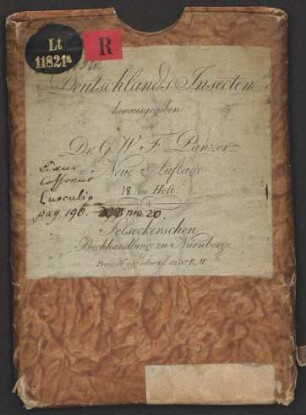 Lt
11821s
R
Deutschlands Insecten
herausgegeben
von
Dr. G. W. F. Panzer
Neue Auflage
18 Heft
Cossonus
Curculio
pag. 196. no. 20.
Felseckerschen
Buchhandlung zu Nürnberg
Preis